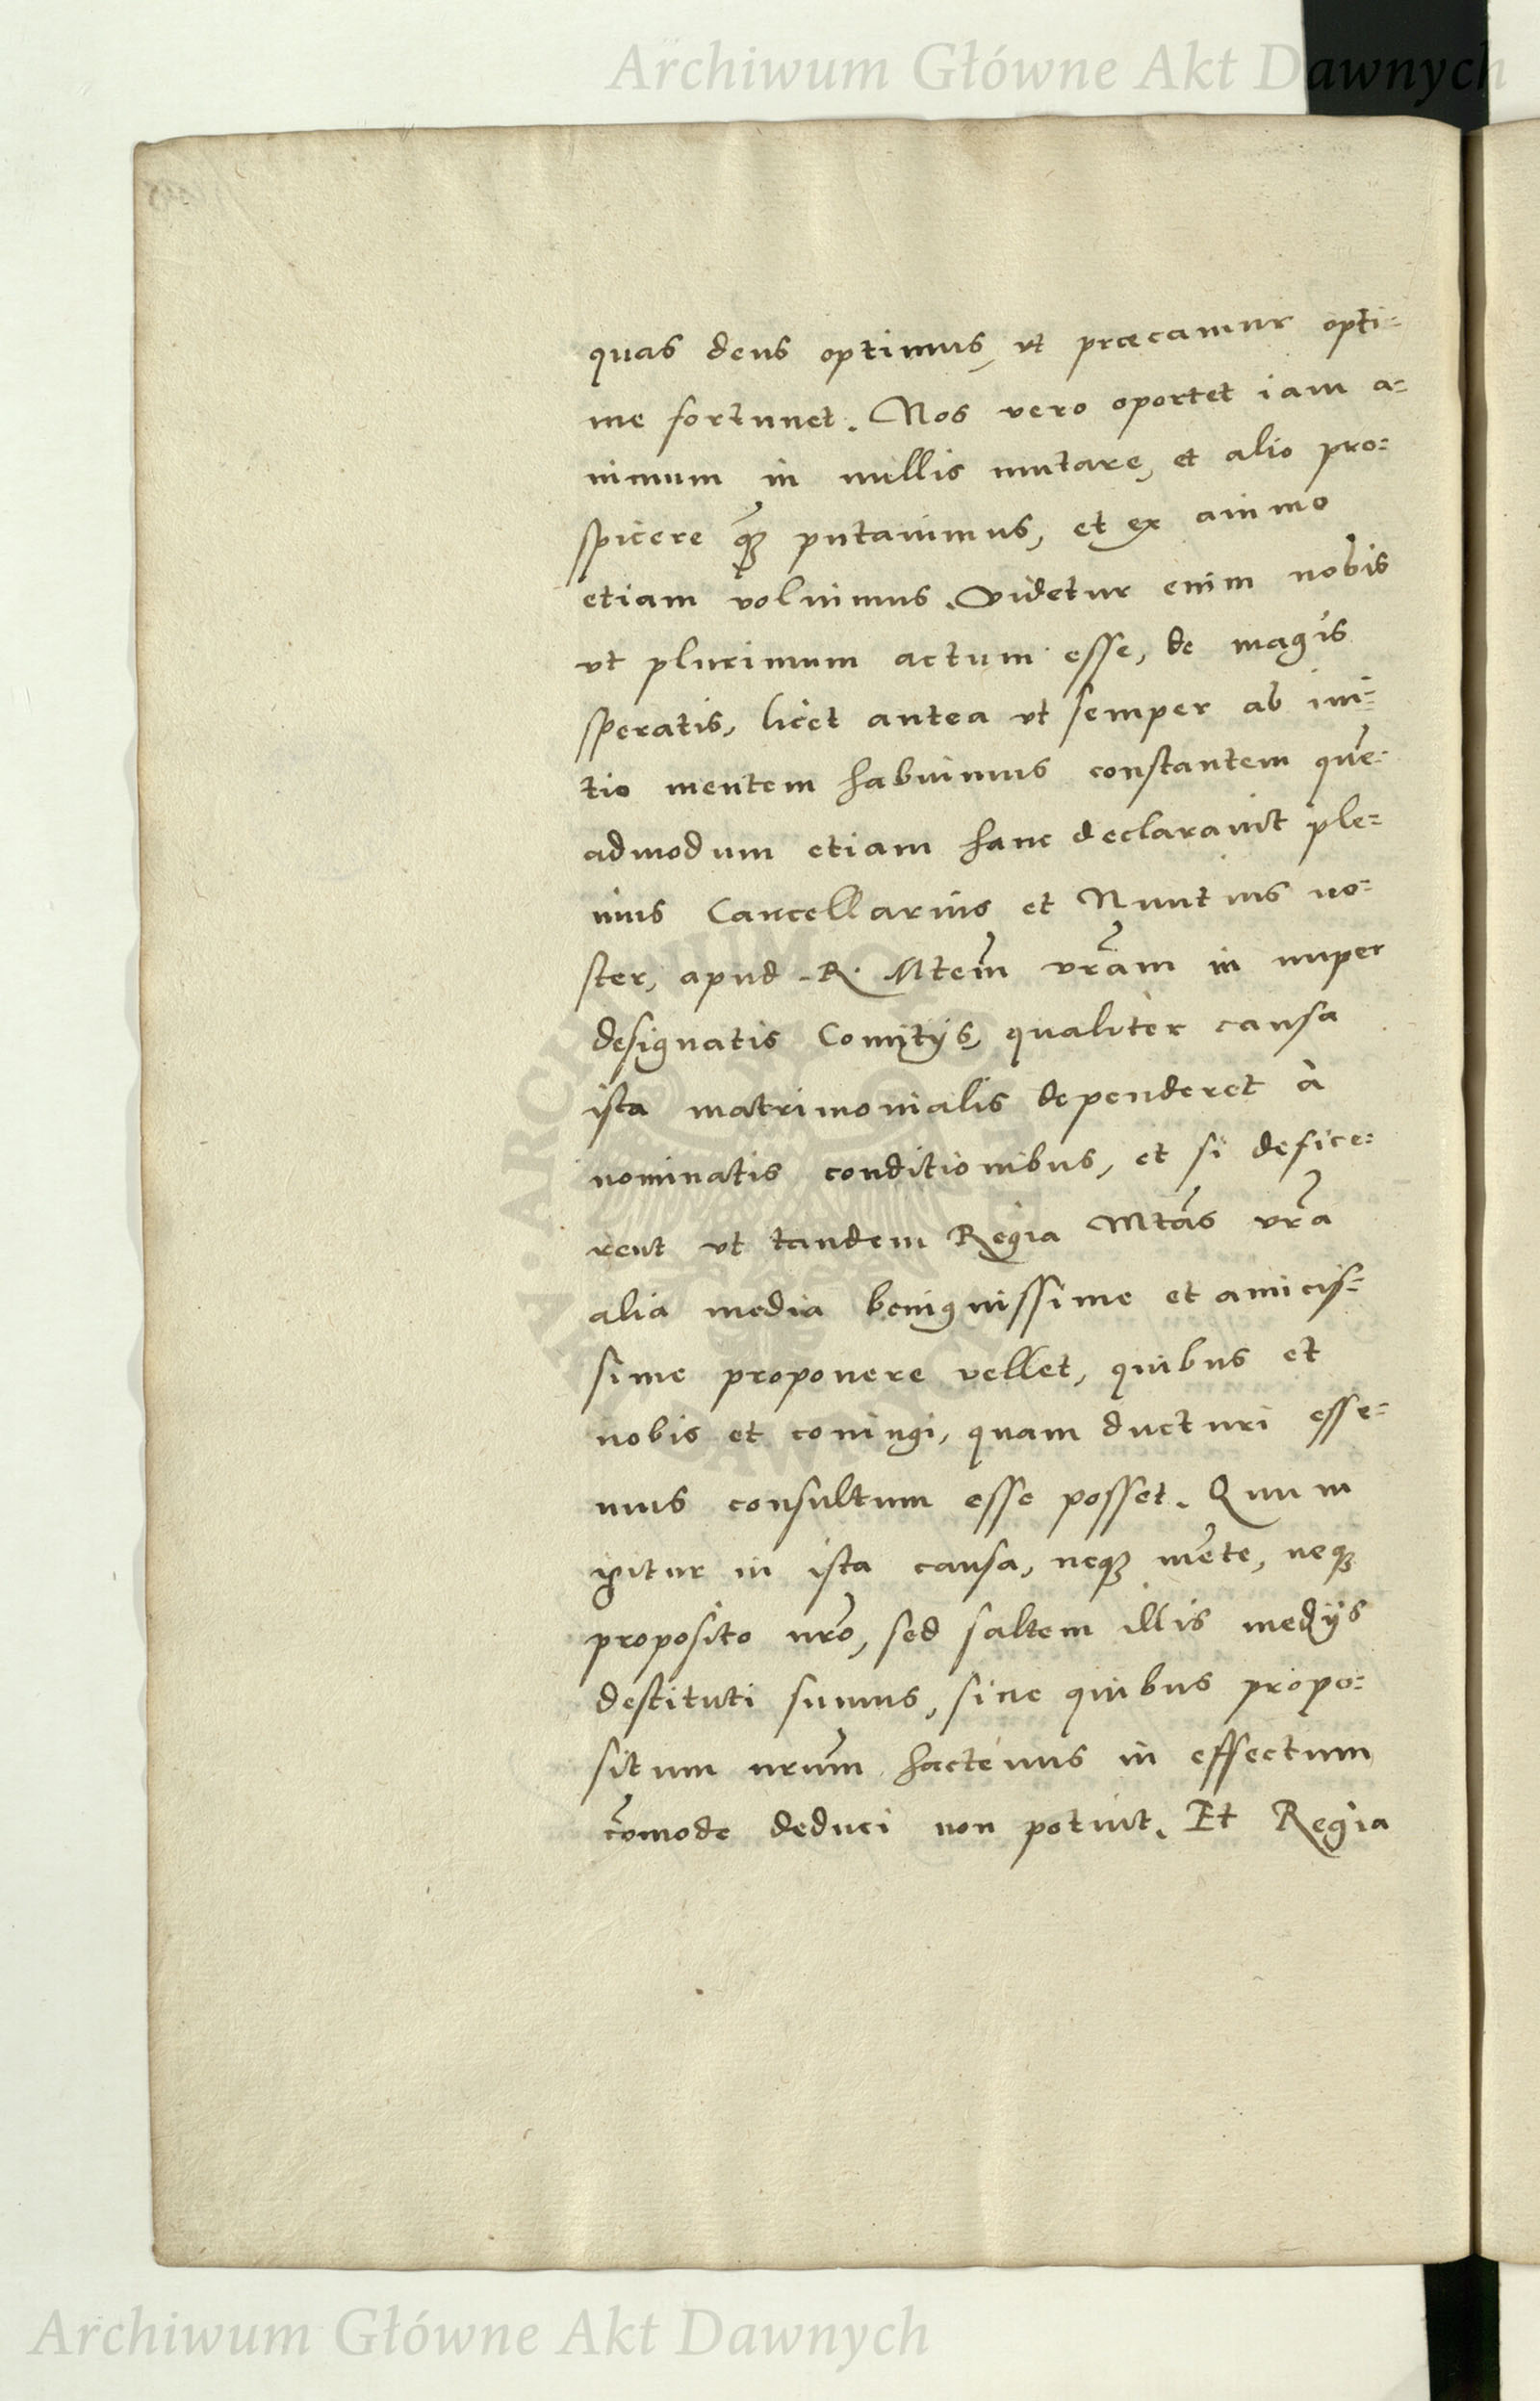 Archiwum Główne Akt Dawnych
quas deus optimus, vt præcamur opti=
me fortunet. Nos vero oportet iam a=
nimum in nullis mutare, et alio pro=
spicere putauimus, et ex animo
etiam voluimus. Videtur enim nobis
vt plurimum actum esse, de magis
speratis, licet antea vt semper ab ini=
tio mentem habuimus constantem quē=
admodum etiam hanc declarauit ple=
nius Cancellarius et Nuntius no=
ster, apud R. Mtem̃ vrãm in nuper
designatis Comitijs, qualiter causa
ista matrimonialis dependeret à
nominatis conditionibus, et si defice=
rent vt tandem Regia Mtãs vrã
alia media benignissime et amicis=
sime proponere vellet, quibus et
nobis et coniugi, quam ducturi esse=
mus consultum esse posset. Quum
igitur in ista causa, neqȝ mẽte, neqȝ
proposito nrõ, sed saltem illis medijs
destituti sumus, sine quibus propo=
situm nrũm hactenus in effectum
cõmode deduci non potuit. Et Regia
Archiwum Główne Akt Dawnych